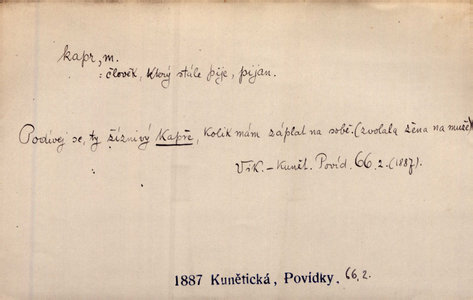 kapr, m.
: člověk, který stále pije, pijan.
Podívej se, ty žíznivý Kapře, kolik mám záplat na sobě. (zvolala žena na muže)
Vrk. - Kunět. Povíd. 66.2. (1887).
1887 Kunětická, Povidky. 66.2.